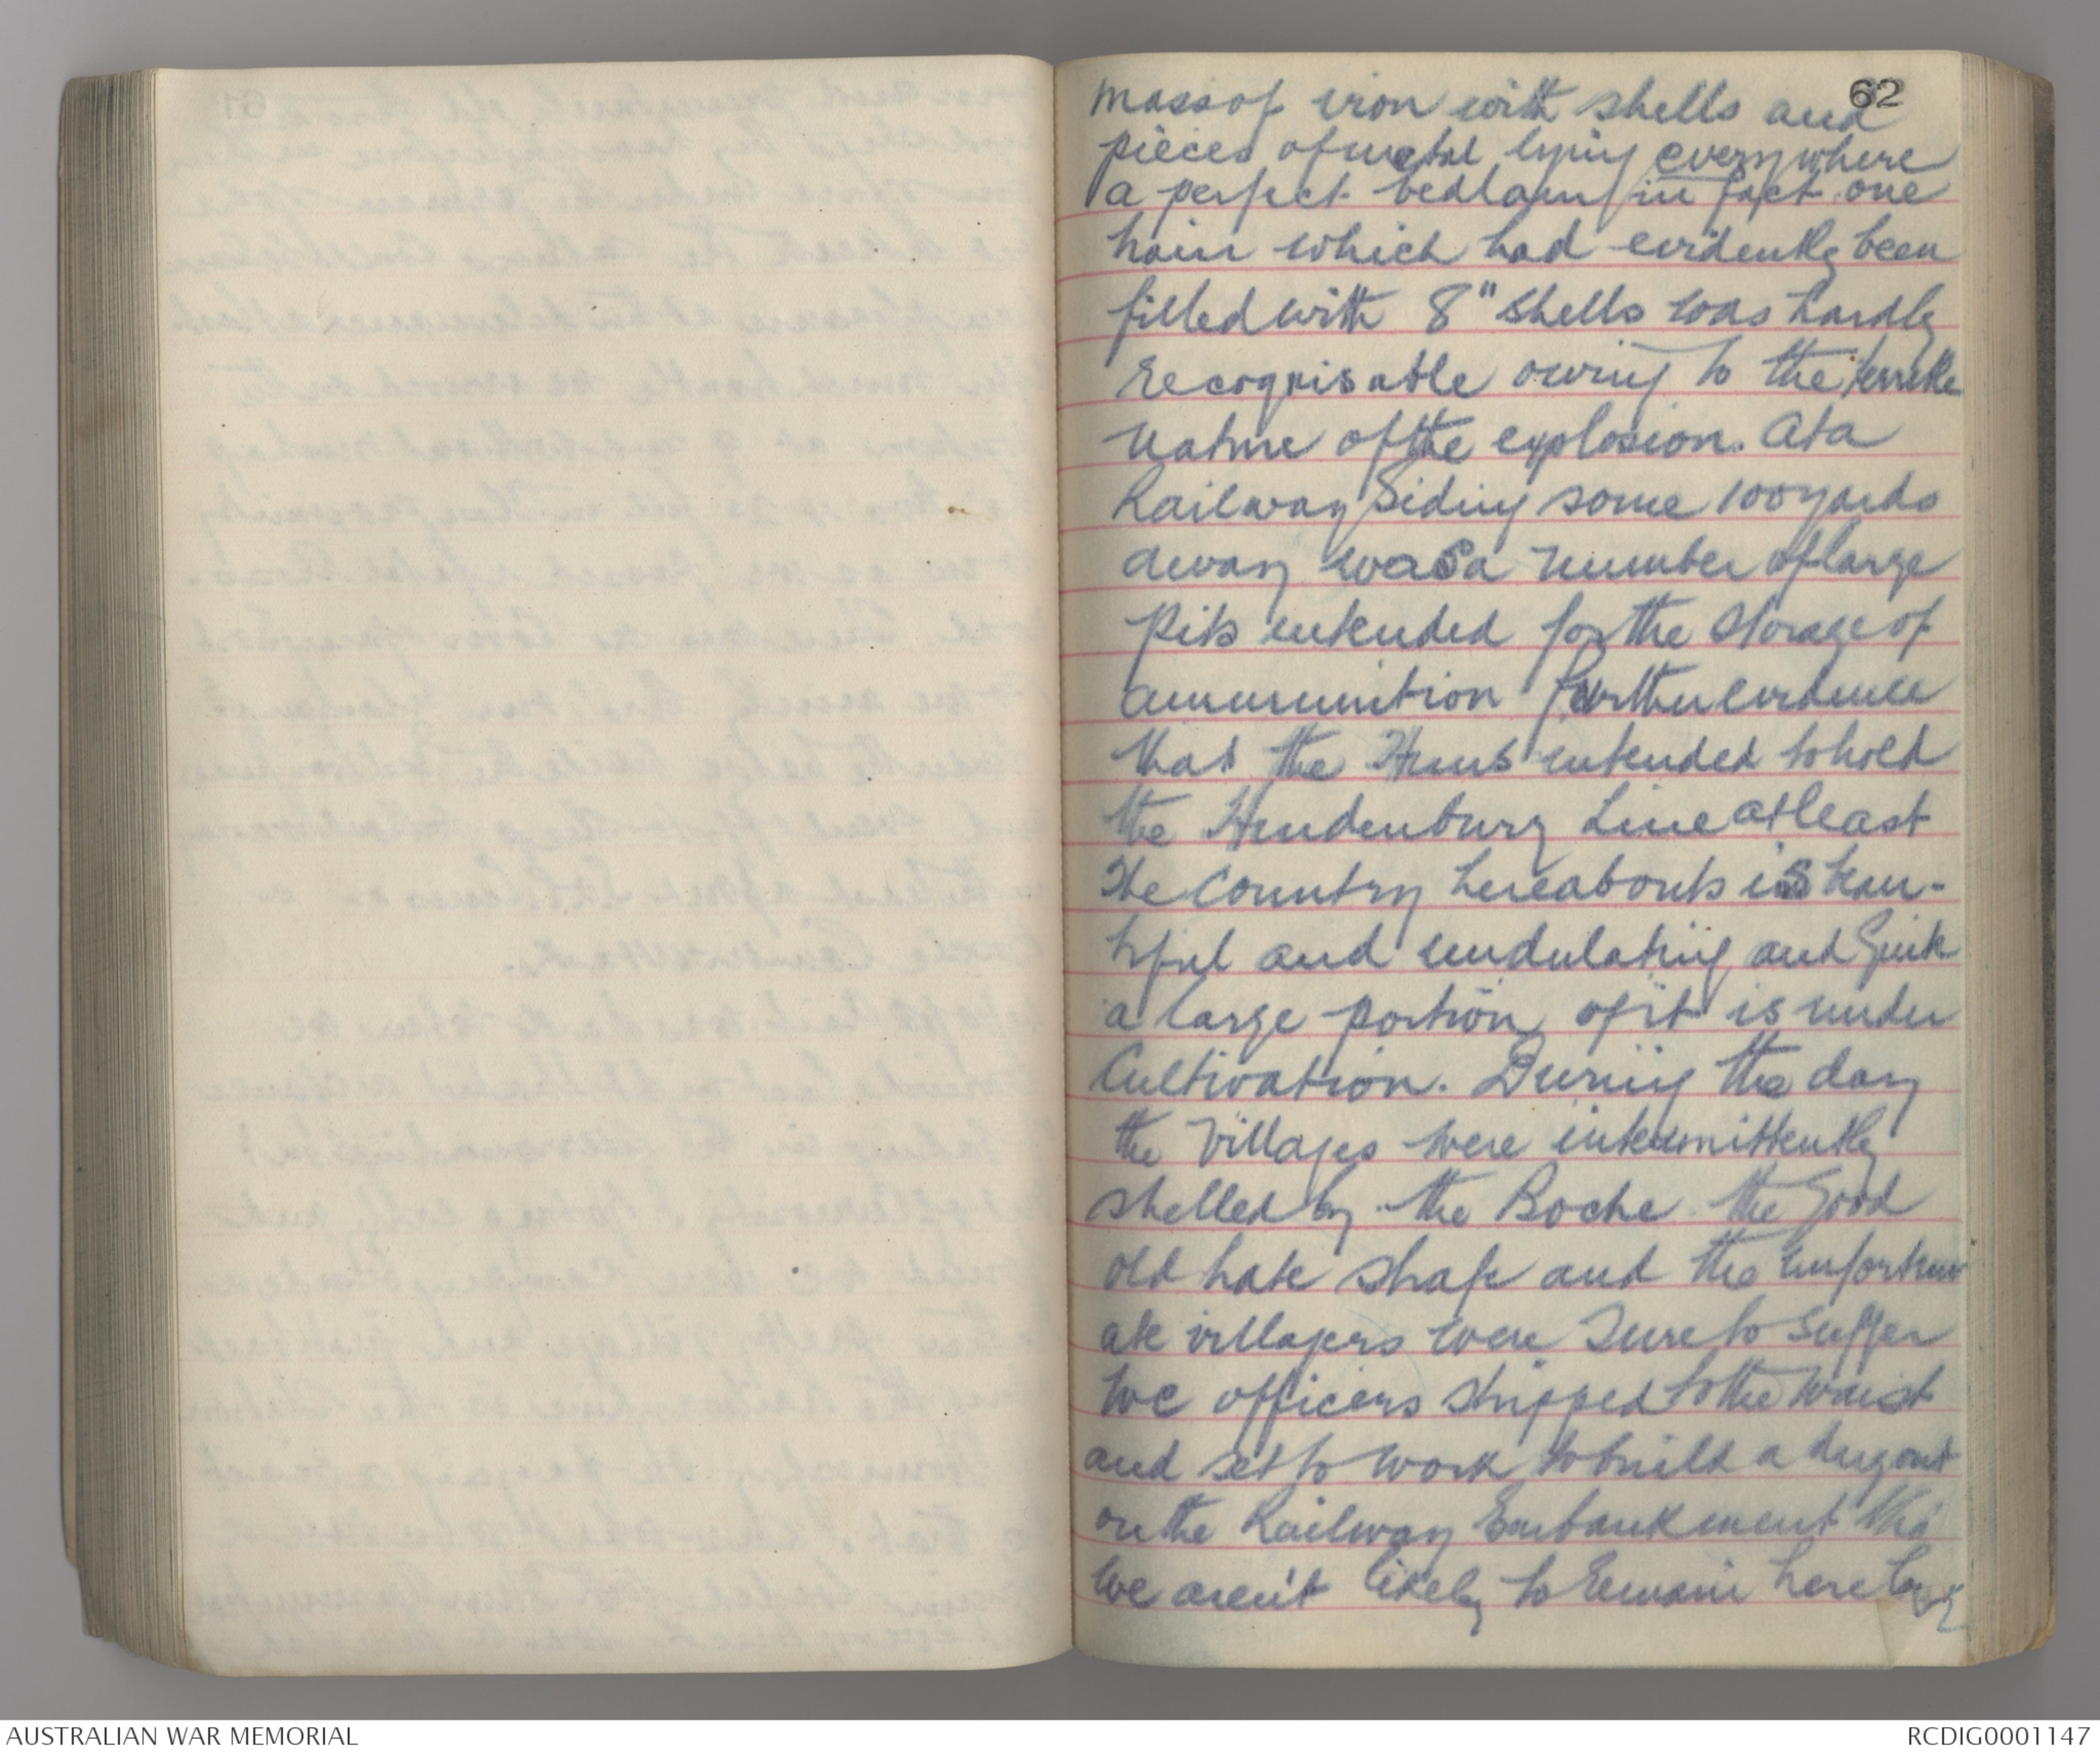 62
mass of iron with shells and
pieces of metal lying everywhere
a perfect bedlam in fact one
train which had evidently been
filled with 8" shells was hardly
recognisable owing to the terrible
nature of the explosion. At a
Railway Siding some 100 yards
away was a number of large
pits intended for the storage of
ammunition further evidence
that the Huns intended to hold
the Hindenburg Line at least
The Country hereabouts is beau-
tiful and undulating and quite
a large portion of it is under
Cultivation. During the day
the Villages were intermittently
shelled by the Boche the good
old hate strafe and the unfortun
ate villagers were sure to suffer
We officers stripped to the waist
and set to work to build a dugout
on the Railway Embankment tho'
we aren't likely to remain here long
AUSTRALIAN WAR MEMORIAL
RCDIG0001147